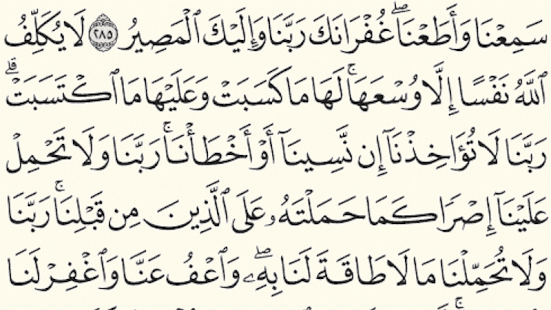 سَمِعْنَا وَأَطَعْنَاۖ غُفْرَانَكَ رَبَّنَا وَإِلَيْكَ ٱلْمَصِيرُ ٢٨٥ لَا يُكَلِّفُ
ٱللَّهُ نَفْسًا إِلَّا وُسْعَهَاۚ لَهَا مَا كَسَبَتْ وَعَلَيْهَا مَا ٱكْتَسَبَتْۗ
رَبَّنَا لَا تُؤَاخِذْنَآ إِن نَّسِينَآ أَوْ أَخْطَأْنَاۚ رَبَّنَا وَلَا تَحْمِلْ
عَلَيْنَآ إِصْرًا كَمَا حَمَلْتَهُۥ عَلَى ٱلَّذِينَ مِن قَبْلِنَاۚ رَبَّنَا
وَلَا تُحَمِّلْنَا مَا لَا طَاقَةَ لَنَا بِهِۦۖ وَٱعْفُ عَنَّا وَٱغْفِرْ لَنَا